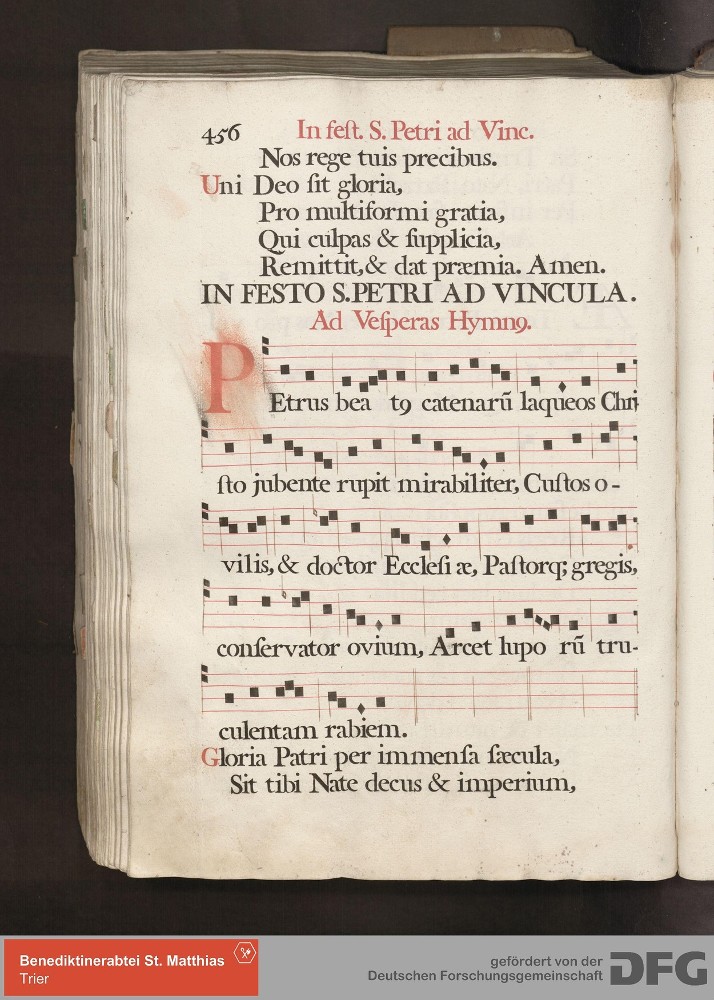 456 In fest. S. Petri ad Vinc.
Nos rege tuis precibus.
Uni Deo sit gloria,
Pro multiformi gratia,
Qui culpas & supplicia,
Remittit, & dat præmia. Amen.
IN FESTO S. PETRI AD VINCULA.
Ad Vesperas Hymn9.
PEtrus bea t9 catenarū laqueos Chri
sto jubente rupit mirabiliter, Custos o-
vilis, & doctor Ecclesi æ, Pastorq; gregis,
conservator ovium, Arcet lupo rū tru-
culentam rabiem.
Gloria Patri per immensa sæcula,
Sit tibi Nate decus & imperium,
Benediktinerabtei St. Matthias
Trier
gefördert von der
Deutschen Forschungsgemeinschaft DFG